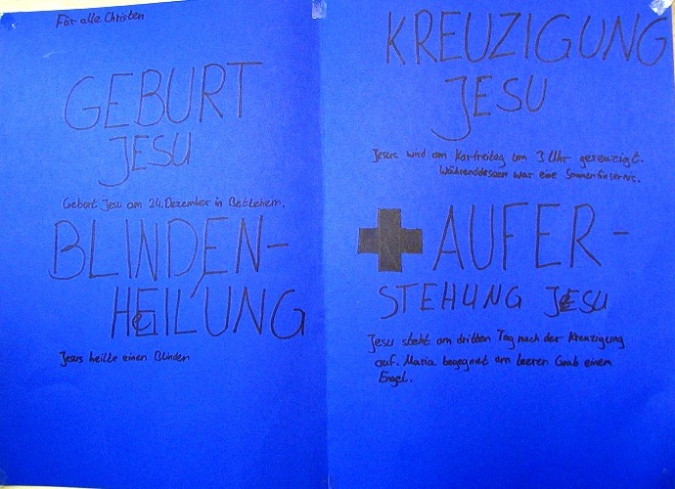 Für alle Christen
GEBURT
JESU
Geburt Jesu am 24. Dezember in Betlehem.
BLINDEN-
HEILUNG
Jesus heilte einen Blinden
KREUZIGUNG
JESU
Jesus wird am Karfreitag um 3 Uhr gekreuzigt.
Währenddessen war eine Sonnenfinsernis.
AUFER-
STEHUNG JESU
Jesu steht am dritten Tag nach der Kreuzigung
auf. Maria begegnet am leeren Grab einem
Engel.